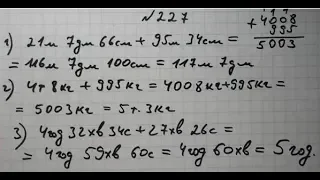 №227
1) 21м 7дм 66см + 95м 34см =
= 116м 7дм 100см = 117м 7дм
+ 4008
995
5003
2) 4т 8кг + 995кг = 4008кг+995кг =
= 5003кг = 5т. 3кг
3) 4год 32хв 34с + 27хв 26с =
= 4год 59хв 60с = 4год 60хв = 5год.